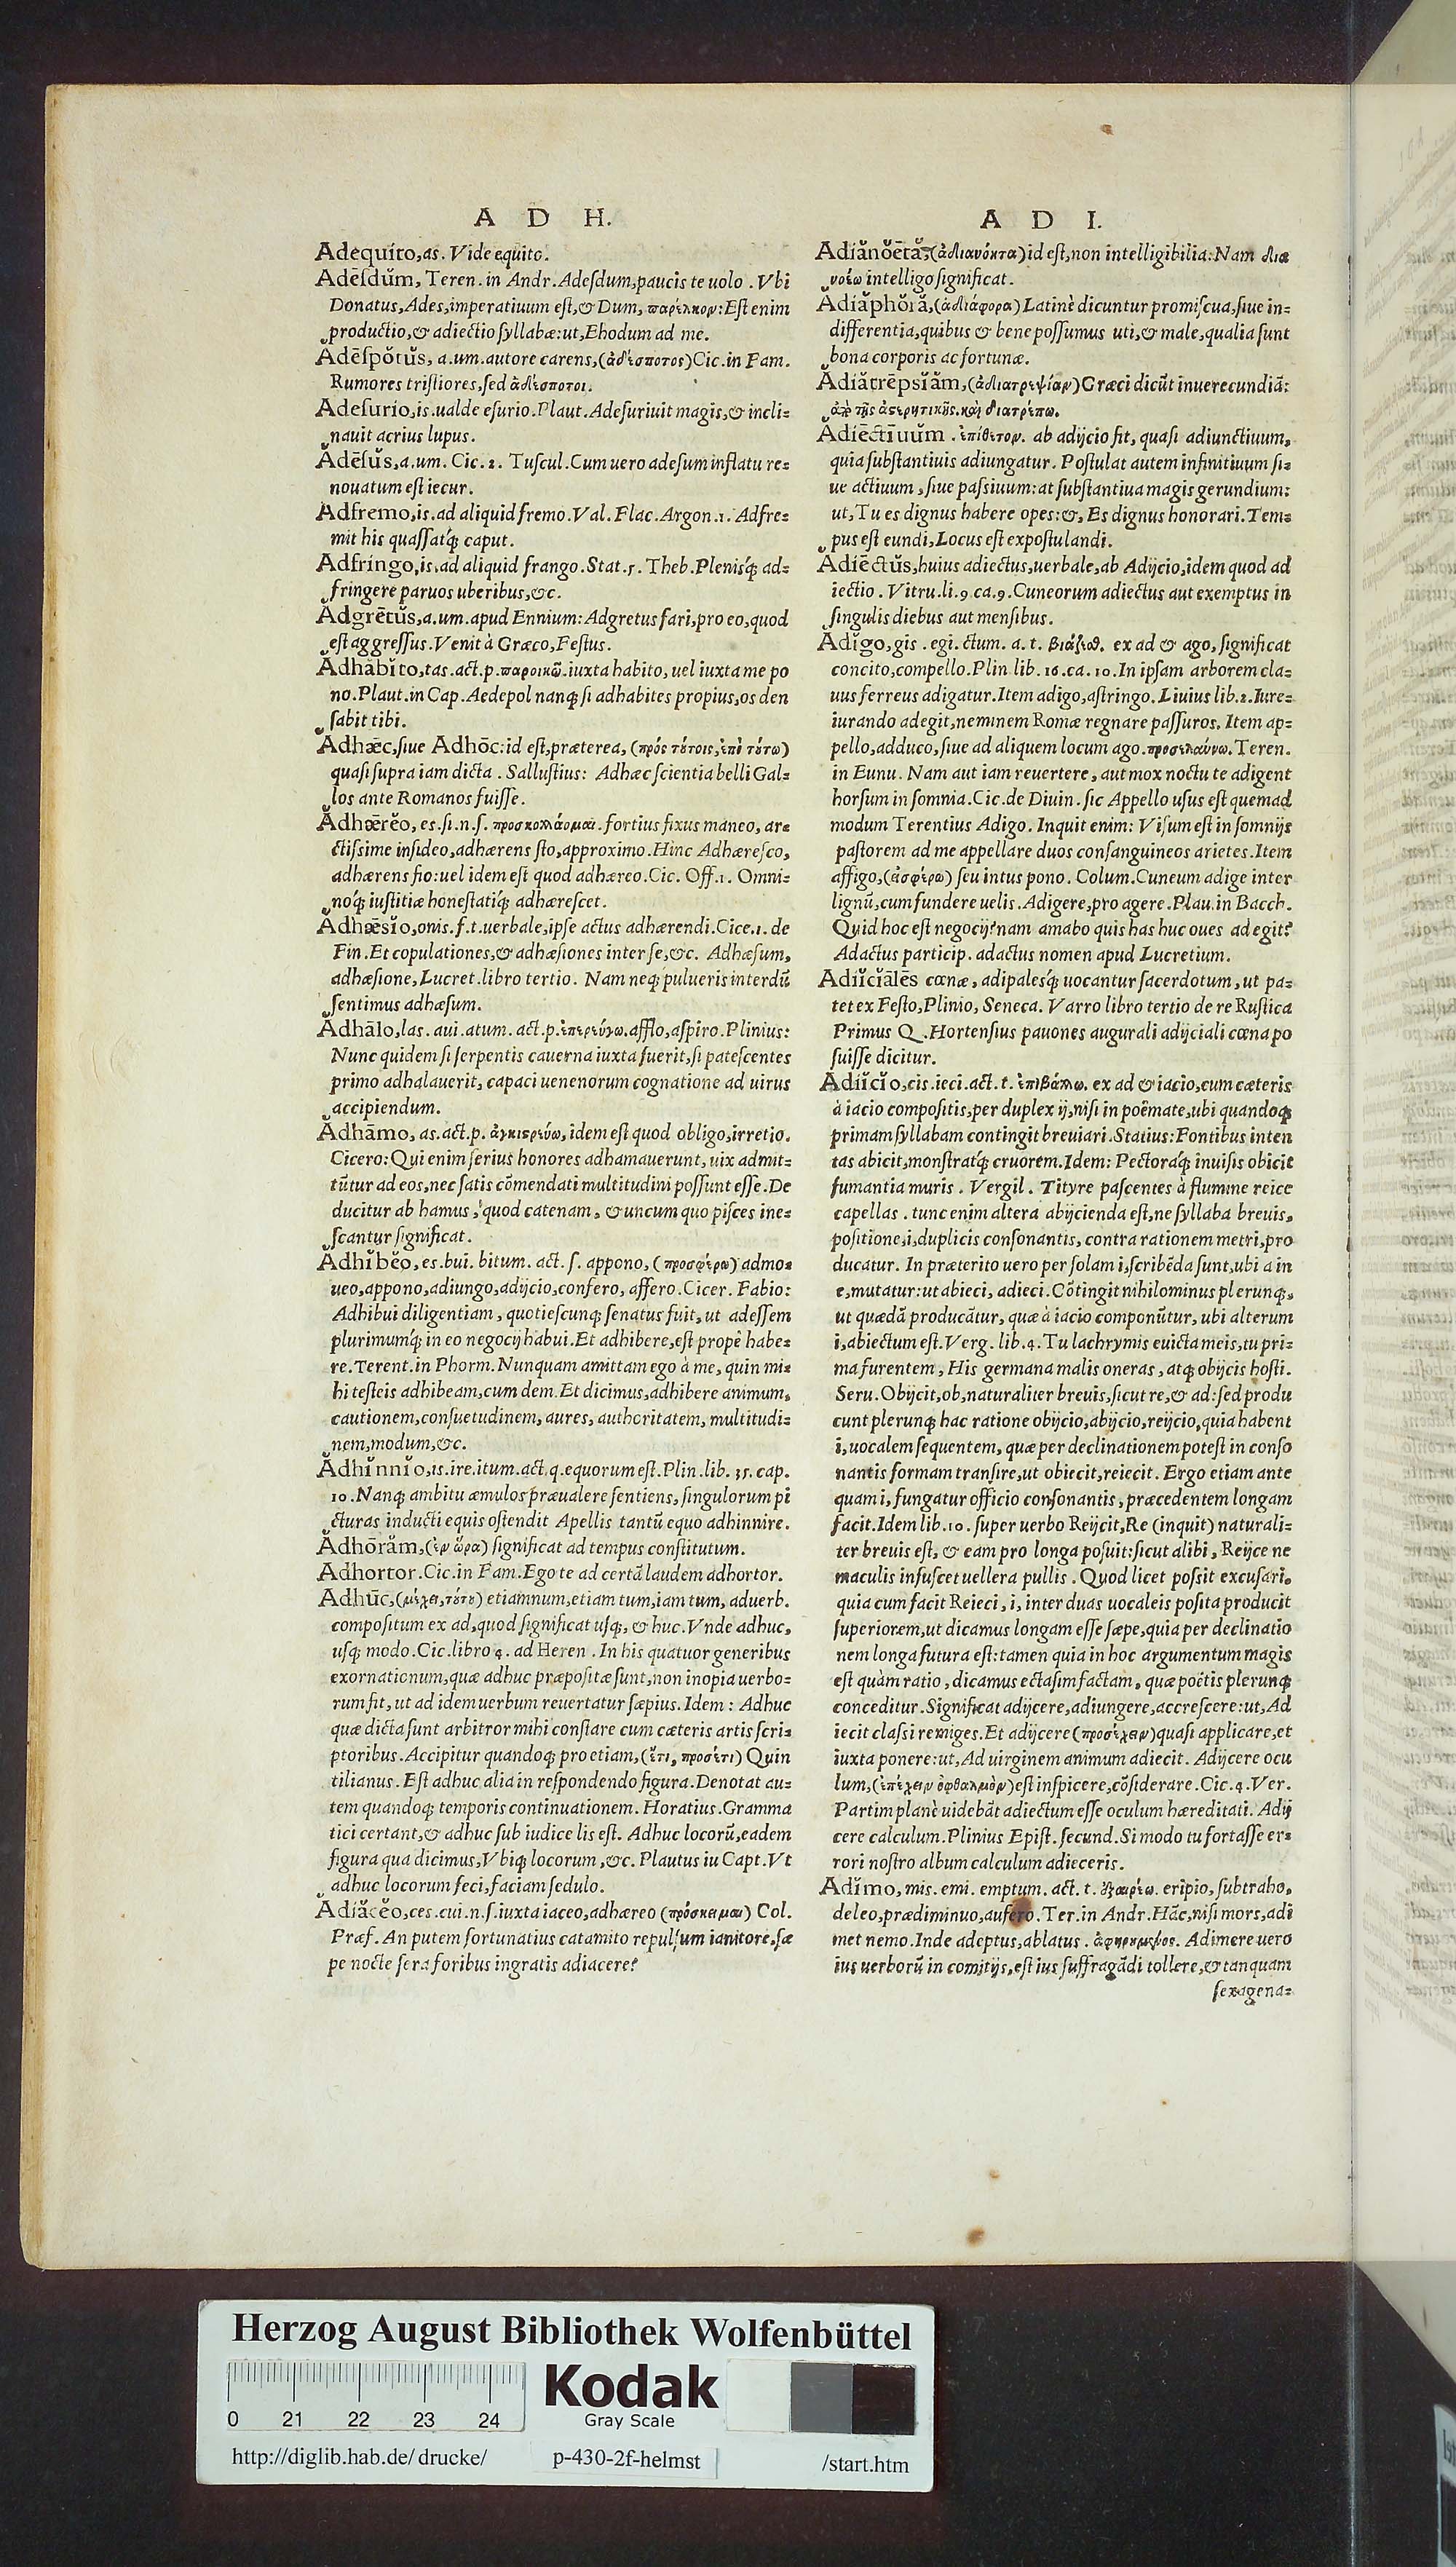 A D H.
Adequíto,as. Vide equito.
Adēſdŭm, Teren. in Andr. Adeſdum,paucis te uolo . Vbi
Donatus, Ades,imperatiuum eſt,& Dum, παρέλκον: Eſt enim
productio,& adiectio ſyllabæ: ut, Ehodum ad me.
Adēſpŏtŭs, a.um.autore carens,(ἀδέσποτος)Cic.in Fam.
Rumores triſtiores,ſed ἀδέσποτοι.
Adeſurío,is.ualde eſurio.Plaut.Adeſuriuit magis,& incli=
nauit acrius lupus.
Adēſŭs,a.um. Cic.2. Tuſcul.Cum uero adeſum inflatu re=
nouatum eſt iecur.
Adfremo,is.ad aliquid fremo.Val.Flac.Argon.1. Adfre=
mit his quaſſatq́; caput.
Adfríngo,is.ad aliquid frango.Stat.5. Theb.Plenisq́; ad=
fringere paruos uberibus,&c.
Adgrētŭs,a.um.apud Ennium: Adgretus fari,pro eo,quod
eſt aggreſſus.Venit à Græco,Feſtus.
Adhăbĭto,tas.act.p.παροικῶ.iuxta habito, uel iuxta me po
no.Plaut.in Cap.Aedepol nanq; ſi adhabites propius,os den
ſabit tibi.
Adhǣc,ſiue Adhōc:id eſt,præterea, (πρὸς τότοις,ἐπὶ τότω)
quaſi ſupra iam dicta . Salluſtius: Adhæc ſcientia belli Gal=
los ante Romanos fuiſſe.
Adhǣrĕo, es.ſi.n.ſ. προσκολλάομαι.fortius fixus maneo, ar=
ctiſsime inſideo,adhærens ſto,approximo.Hinc Adhæreſco,
adhærens fio:uel idem eſt quod adhæreo.Cic. Off.1. Omni=
noq́; iuſtitiæ honeſtatiq́; adhæreſcet.
Adhǣsĭo,onis.f.t.uerbale,ipſe actus adhærendi.Cice.1. de
Fin.Et copulationes,& adhæſiones inter ſe,&c. Adhæſum,
adhæſione,Lucret.libro tertio. Nam neq; pulueris interdũ
ſentimus adhæſum.
Adhālo,las. aui.atum. act.p.ἐπερεύγω.afflo,aſpiro.Plinius:
Nunc quidem ſi ſerpentis cauerna iuxta fuerit,ſi pateſcentes
primo adhalauerit, capaci uenenorum cognatione ad uirus
accipiendum.
Adhāmo, as.act.p. ἀγκιςρεύω, idem eſt quod obligo,irretio.
Cicero: Qui enim ſerius honores adhamauerunt, uix admit=
tũtur ad eos,nec ſatis cõmendati multitudini poſſunt eſſe.De
ducitur ab hamus , quod catenam, & uncum quo piſces ine=
ſcantur ſignificat.
Adhĭbĕo, es.bui. bitum. act. ſ. appono, (προσφέρω) admo=
ueo,appono,adiungo,adijcio,confero, affero.Cicer. Fabio:
Adhibui diligentiam , quotieſcunq; ſenatus fuit, ut adeſſem
plurimumq́; in eo negocij habui.Et adhibere,eſt propè habe=
re.Terent.in Phorm.Nunquam amittam ego à me, quin mi=
hi teſteis adhibeam,cum dem.Et dicimus,adhibere animum,
cautionem,conſuetudinem, aures, authoritatem, multitudi=
nem,modum,&c.
Adhĭnnĭo,is.ire.itum.act.q.equorum eſt.Plin.lib. 35. cap.
10.Nanq; ambitu æmulos præualere ſentiens, ſingulorum pi
cturas inducti equis oſtendit Apellis tantũ equo adhinnire.
Adhōrăm,(ἐν ὥρα) ſignificat ad tempus conſtitutum.
Adhortor.Cic.in Fam.Ego te ad certã laudem adhortor.
Adhūc,(μέχει,τότυ) etiamnum,etiam tum,iam tum, aduerb.
compoſitum ex ad,quod ſignificat uſq;, & huc.Vnde adhuc,
uſq; modo.Cic.libro 4. ad Heren . In his quatuor generibus
exornationum,quæ adhuc præpoſitæ ſunt,non inopia uerbo=
rum fit,ut ad idem uerbum reuertatur ſæpius.Idem : Adhuc
quæ dicta ſunt arbitror mihi conſtare cum cæteris artis ſcri=
ptoribus.Accipitur quandoq; pro etiam,(ἔτι, προσέτι) Quin
tilianus.Eſt adhuc alia in reſpondendo figura.Denotat au=
tem quandoq; temporis continuationem.Horatius.Gramma
tici certant,& adhuc ſub iudice lis eſt. Adhuc locorũ,eadem
figura qua dicimus,Vbiq; locorum ,&c. Plautus iu Capt.Vt
adhuc locorum feci,faciam ſedulo.
Adíăcĕo,ces.cui.n.ſ.iuxta iaceo,adhæreo (πρόσκειμαι) Col.
Præf.An putem fortunatius catamito repulſum ianitore,ſæ
pe nocte ſera foribus ingratis adiacere?
A D I.
Adíănŏētă,(ἀδιανόητα)id eſt,non intelligibilia: Nam δια
νοέω intelligo ſignificat.
Adíăphŏră,(ἀδιάφορα)Latinè dicuntur promiſcua,ſiue in=
differentia,quibus & bene poſſumus uti,& male,qualia ſunt
bona corporis ac fortunæ.
Adíătrēpsĭăm,(ἀδιατρεψίαν)Græci dicũt inuerecundiã:
ἀπὸ τῆς ἀςερητικῆς.καὶ διατρέπω.
Adíēctīuŭm . ἐπίθετον. ab adijcio fit, quaſi adiunctiuum,
quia ſubſtantiuis adiungatur. Poſtulat autem infinitiuum ſi=
ue actiuum , ſiue paſsiuum: at ſubſtantiua magis gerundium:
ut, Tu es dignus habere opes:&, Es dignus honorari.Tem=
pus eſt eundi,Locus eſt expoſtulandi.
Adíēctŭs,huius adiectus,uerbale,ab Adijcio,idem quod ad
iectio . Vitru.li.9.ca.9.Cuneorum adiectus aut exemptus in
ſingulis diebus aut menſibus.
Adĭgo,gis . egi. ctum. a. t. βιάζω. ex ad & ago, ſignificat
concito,compello.Plin lib. 16.ca.10.In ipſam arborem cla=
uus ferreus adigatur.Item adigo,aſtringo.Liuius lib.2.Iure=
iurando adegit,neminem Romæ regnare paſſuros. Item ap=
pello,adduco, ſiue ad aliquem locum ago.προσελαύνω.Teren.
in Eunu. Nam aut iam reuertere, aut mox noctu te adigent
horſum in ſomnia.Cic.de Diuin.ſic Appello uſus eſt quemad
modum Terentius Adigo. Inquit enim: Viſum eſt in ſomnijs
paſtorem ad me appellare duos conſanguineos arietes.Item
affigo,(ἀσφέρω) ſeu intus pono. Colum.Cuneum adige inter
lignũ,cum fundere uelis.Adigere,pro agere.Plau.in Bacch.
Quid hoc eſt negocij?nam amabo quis has huc oues adegit?
Adactus particip. adactus nomen apud Lucretium.
Adíĭcĭālēs cœnæ, adipalesq́; uocantur ſacerdotum,ut pa=
tet ex Feſto,Plinio, Seneca. Varro libro tertio de re Ruſtica
Primus Q.Hortenſius pauones augurali adijciali cœna po
ſuiſſe dicitur.
Adíĭcĭo,cis.ieci.act.t.ἐπιβάλλω. ex ad & iacio,cum cæteris
à iacio compoſitis,per duplex ij,niſi in poëmate,ubi quandoq;
primam ſyllabam contingit breuiari.Statius:Fontibus inten
tas abicit,monſtratq́; cruorem.Idem: Pectoraq́; inuiſis obicit
fumantia muris . Vergil. Tityre paſcentes à flumine reice
capellas . tunc enim altera abijcienda eſt,ne ſyllaba breuis,
poſitione,i,duplicis conſonantis, contra rationem metri,pro
ducatur. In præterito uero per ſolam i,ſcribẽda ſunt,ubi a in
e,mutatur:ut abieci, adieci.Cõtingit nihilominus plerunq;,
ut quædã producãtur, quæ à iacio componũtur, ubi alterum
i,abiectum eſt.Verg.lib.4.Tu lachrymis euicta meis,tu pri=
ma furentem, His germana malis oneras , atq; obijcis hoſti.
Seru.Obijcit,ob,naturaliter breuis,ſicut re,& ad:ſed produ
cunt plerunq; hac ratione obijcio,abijcio,reijcio,quia habent
i,uocalem ſequentem, quæ per declinationem poteſt in conſo
nantis formam tranſire,ut obiecit,reiecit. Ergo etiam ante
quam i, fungatur officio conſonantis, præcedentem longam
facit.Idem lib.10. ſuper uerbo Reijcit,Re (inquit) naturali=
ter breuis eſt, & eam pro longa poſuit:ſicut alibi, Reijce ne
maculis infuſcet uellera pullis .Quod licet poſsit excuſari.
quia cum facit Reieci, i, inter duas uocaleis poſita producit
ſuperiorem,ut dicamus longam eſſe ſæpe,quia per declinatio
nem longa futura eſt:tamen quia in hoc argumentum magis
eſt quàm ratio , dicamus ectaſim factam, quæ poëtis plerunq;
conceditur.Significat adijcere,adiungere,accreſcere:ut,Ad
iecit claſsi remiges.Et adijcere (προσέχειν)quaſi applicare,et
iuxta ponere:ut,Ad uirginem animum adiecit. Adijcere ocu
lum,(ἐπέχειν ὀφθαλμὸν)eſt inſpicere,cõſiderare.Cic.4.Ver.
Partim planè uidebãt adiectum eſſe oculum hæreditati. Adij
cere calculum.Plinius Epiſt. ſecund.Si modo tu fortaſſe er=
rori noſtro album calculum adieceris.
Adĭmo, mis. emi. emptum. act. t. ἐξαιρέω. eripio, ſubtraho,
deleo,prædiminuo,aufero.Ter.in Andr.Hãc,niſi mors,adi
met nemo.Inde adeptus,ablatus . ἀφῃρημένος. Adimere uero
ius uerborũ in comitijs,eſt ius ſuffragãdi tollere,& tanquam
ſexagena=
Herzog August Bibliothek Wolfenbüttel
0 21 22 23 24
Kodak
Gray Scale
http://diglib.hab.de/drucke/ p-430-2f-helmst /start.htm